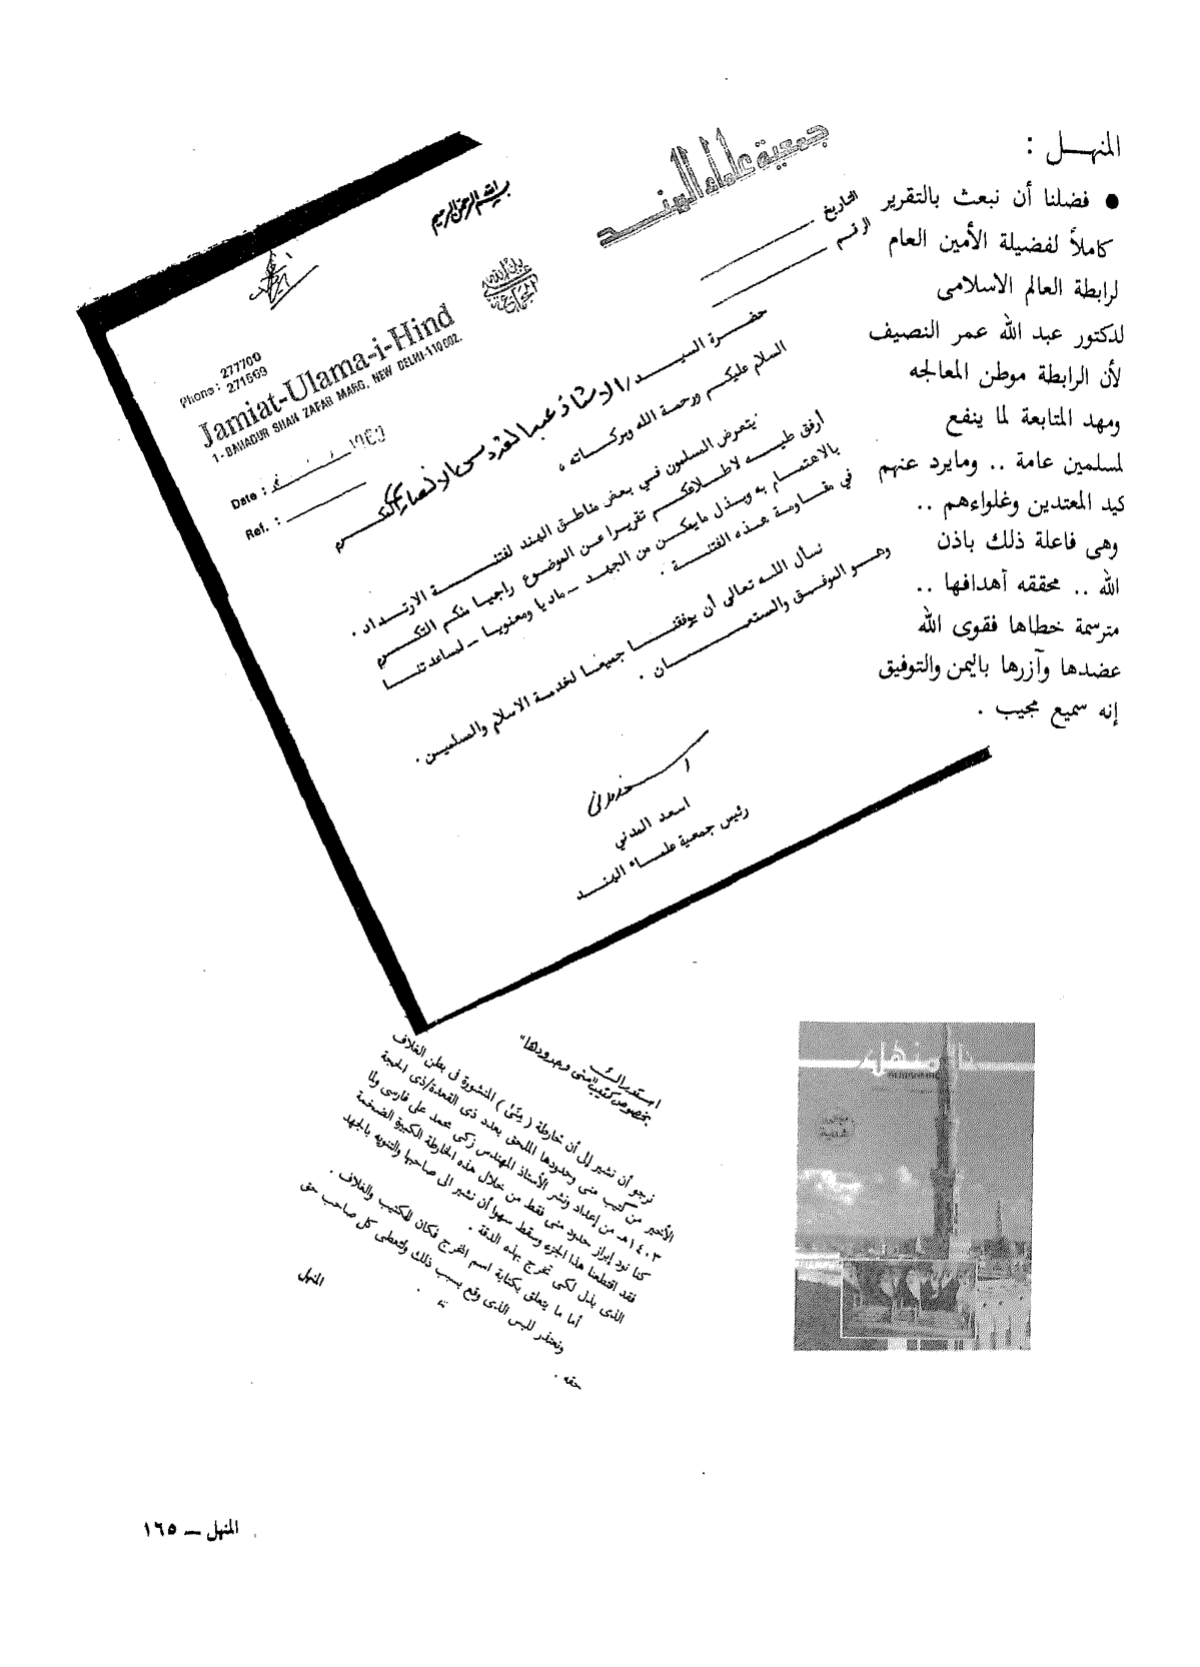 المنهـــل :
● فضلنا أن نبعث بالتقرير
كاملاً لفضيلة الأمين العام
لرابطة العالم الاسلامى
لدكتور عبد الله عمر النصيف
لأن الرابطة موطن المعالجه
ومهد المتابعة لما ينفع
لمسلمين عامة .. ومايرد عنهم
كيد المعتدين وغلواءهم ..
وهى فاعلة ذلك باذن
الله .. محققه أهدافها ..
مترسمة خطاها فقوى الله
عضدها وآزرها باليمن والتوفيق
إنه سميع مجيب .
جمعية علماء الهند
بسم الله الرحمن الرحيم
التاريخ
الرقم
Phone : 277700
271569
Jamiat-Ulama-i-Hind
1- BAHADUR SHAH ZAFAR MARG, NEW DELHI-110002.
Date :
Ref. :
حضرة السيد / الاستاذ عبد القدوس الانصاري المكرم
السلام عليكم ورحمة الله وبركاته ،
يتعرض المسلمون في بعض مناطق الهند لفتنة الارتداد .
أرفق طيه لاطلاعكم تقريرا عن الموضوع راجيا منكم التكرم
بالاهتمام به وبذل مايمكن من الجهد - ماديا ومعنويا - لمساعدتنا
في مقاومة هذه الفتنة .
نسأل الله تعالى أن يوفقنا جميعا لخدمة الاسلام والمسلمين .
وهو الموفق والمستعان .
اسعد المدني
رئيس جمعية علماء الهند
استدراك
بخصوص كتيب "منى وحدودها"
نرجو أن نشير إلى أن خارطة ( مِنَىٰ ) المنشورة فى بطن الغلاف
الأخير من كتيب منى وحدودها الملحق بعدد ذى القعدة/ذى الحجة
١٤٠٣هـ من إعداد ونشر الأستاذ المهندس زكى محمد على فارسى ولما
كنا نود إبراز حدود منى فقط من خلال هذه الخارطة الكبيرة الضخمة
فقد اقتطعنا هذا الجزء وسقط سهوا أن نشير الى صاحبها والتنويه بالجهد
الذى بذل لكى تخرج بهذه الدقة .
أما ما يتعلق بكتابة اسم المخرج فكان للكتيب والغلاف .
ونعتذر للبس الذى وقع بسبب ذلك ولنعطى كل صاحب حق
حقه .
المنهل
المنهل
المنهل — ١٦٥